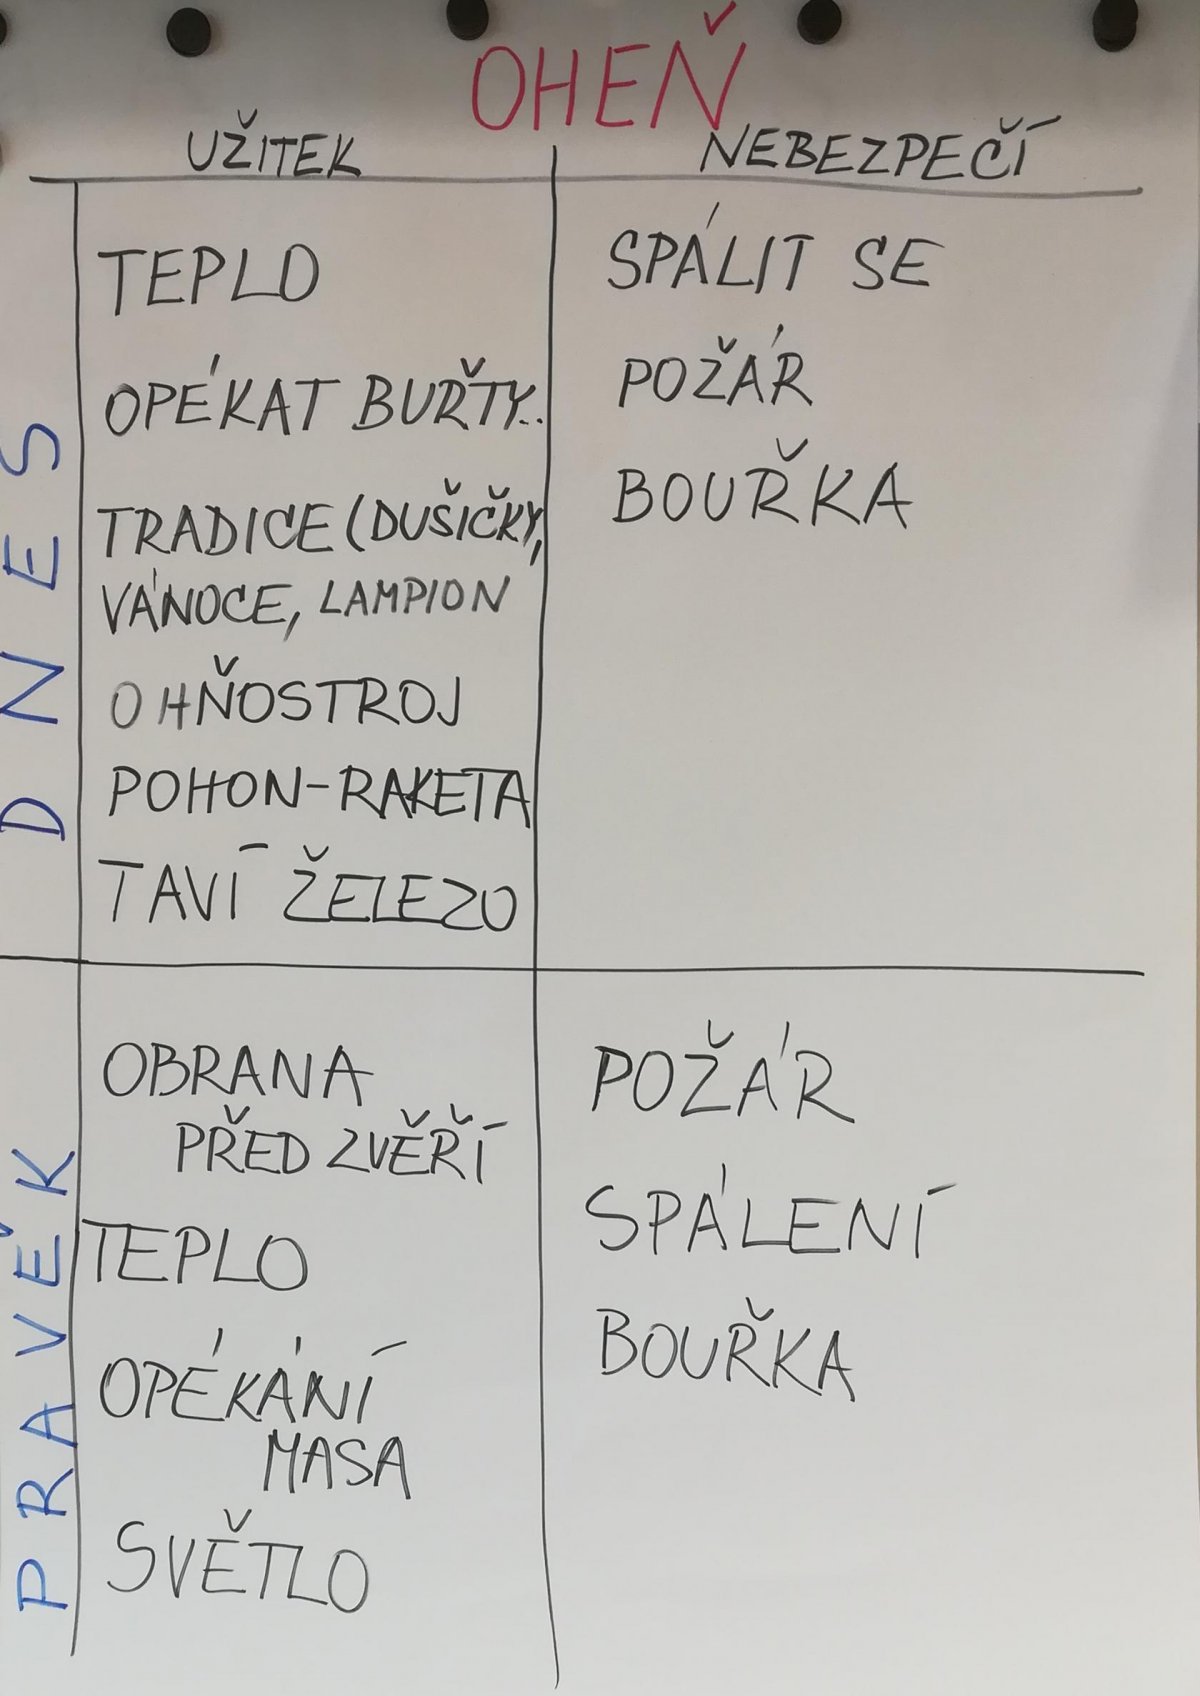 OHEŇ
UŽITEK
NEBEZPEČÍ
DNES
TEPLO
OPÉKAT BUŘTY..
TRADICE (DUŠIČKY,
VÁNOCE, LAMPION
OHŇOSTROJ
POHON-RAKETA
TAVÍ ŽELEZO
SPÁLIT SE
POŽÁR
BOUŘKA
PRAVĚK
OBRANA
PŘED ZVĚŘÍ
TEPLO
OPÉKÁNÍ
MASA
SVĚTLO
POŽÁR
SPÁLENÍ
BOUŘKA